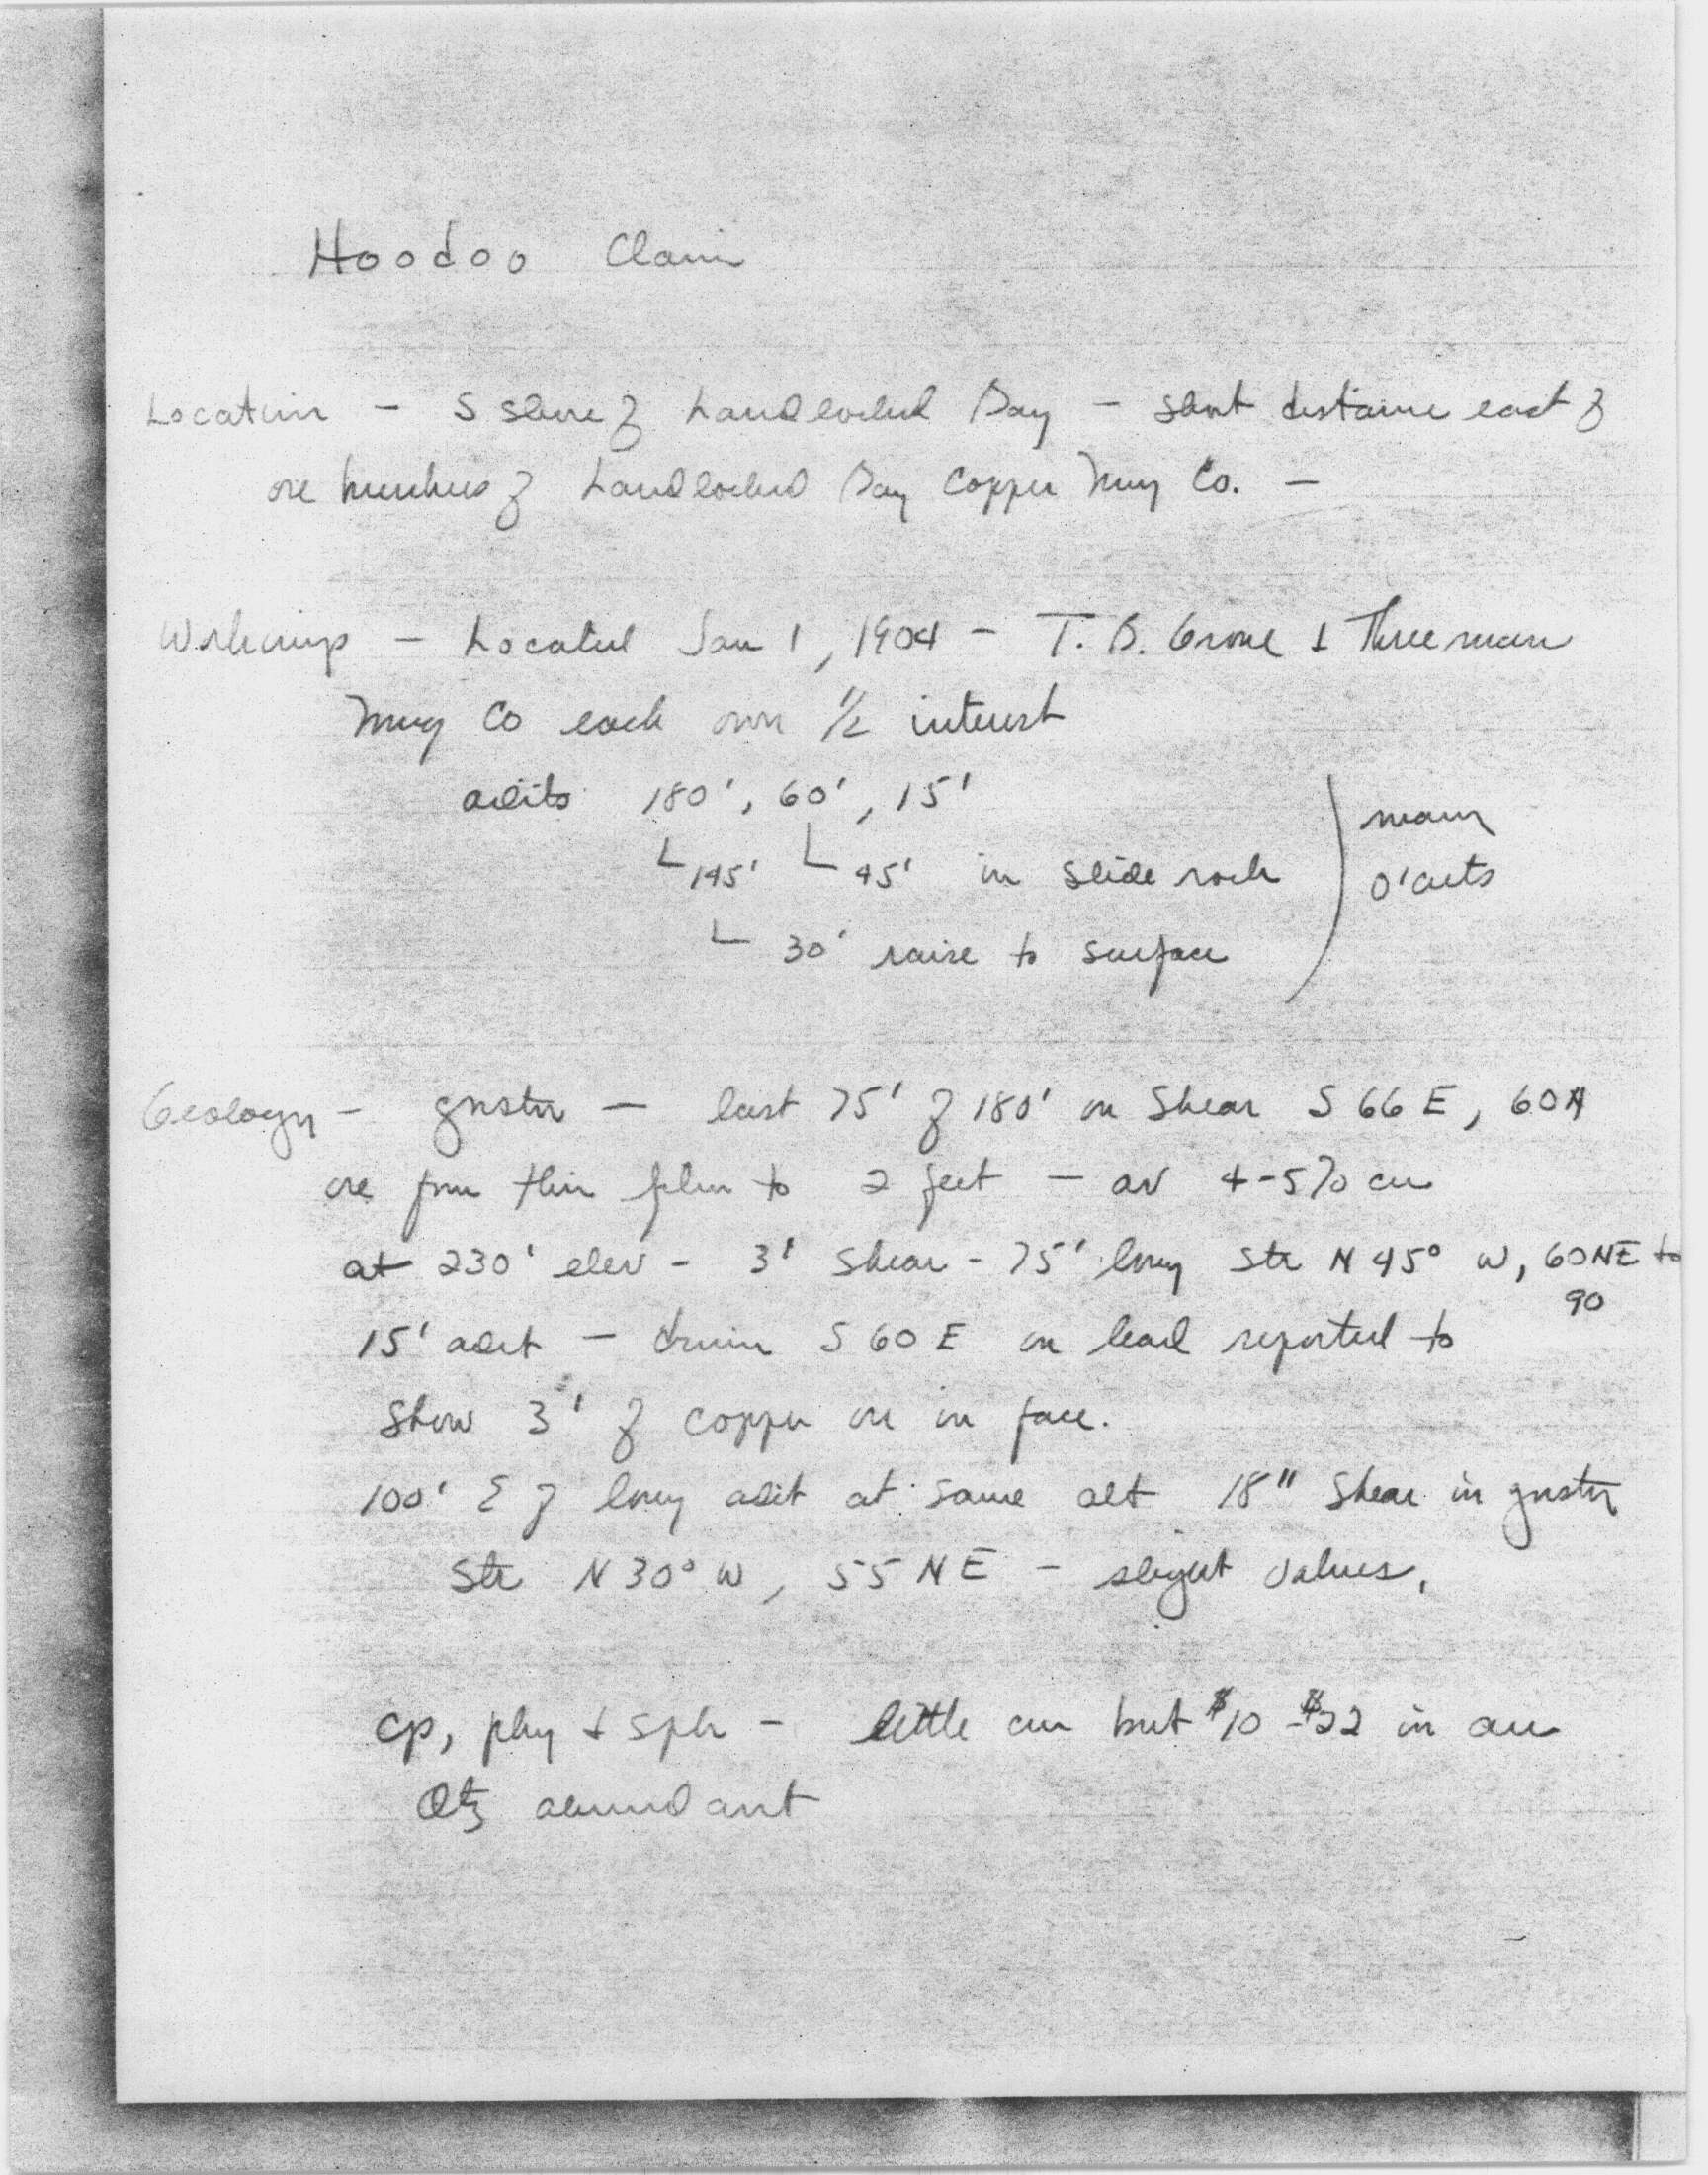 Hoodoo Claim
Location - S shore of Landlocked Bay - short distance east of
ore bunkers of Landlocked Bay Copper Mng Co. -
Workings - Located Jan 1, 1904 - T. B. & Three man
Mng Co each own 1/2 interest
adits 180', 60', 15'
└145' └45' in slide rock
└ 30' raise to surface
many
o'cuts
Geology - gnstn - last 75' of 180' on shear S 66 E, 60N
ore from thin film to 2 feet - av 4-5% cu
at 230' elev - 3' shear - 75' long str N 45° W, 60NE to
90
15' adit - driven S 60 E on lead reported to
show 3' of copper ore in face.
100' E of long adit at same alt 18" shear in gnstn
Str N 30° W, 55 NE - slight values.
cp, phy & sph - little cu but $10 - $22 in au
Qtz abundant